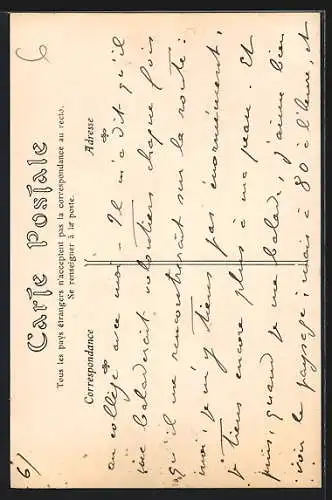 6
Carte Postale
Tous les pays étrangers n'acceptent pas la correspondance au recto.
Se renseigner à la poste.
Correspondance
Adresse
au collège avec moi - Il m'a dit qu'il
me baladerait volontiers chaque fois
qu'il me rencontrerait sur la route :
moi, je n'y tiens pas énormément,
je tiens encore plus à ma peau. Et
puis, quand je me balade, j'aime bien
voir le paysage ; mais à 80 à l'heure, et
6/